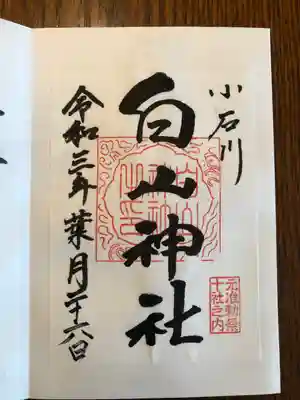 小石川
白山神社
令和三年葉月二十六日
元准勅祭
十社之内